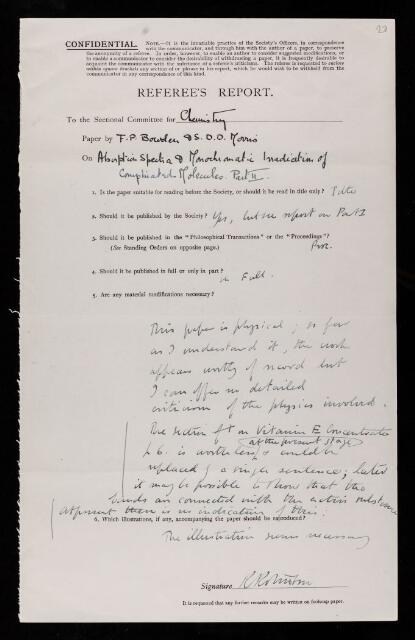 22
CONFIDENTIAL. NOTE.—It is the invariable practice of the Society's Officers, in correspondence
with the communicator, and through him with the author of a paper, to preserve
the anonymity of a referee. In order, however, to enable an author to consider suggested modifications, or
to enable a communicator to consider the desirability of withdrawing a paper, it is frequently desirable to
acquaint the communicator with the substance of a referee's criticisms. The referee is requested to enclose
within square brackets any section of or phrase in his report, which he would wish to be withheld from the
communicator in any correspondence of this kind.
REFEREE'S REPORT.
To the Sectional Committee for Chemistry
Paper by F. P. Bowden & S. D. D. Morris
On Absorption Spectra & Monochromatic Irradiation of
Complicated Molecules. Part II.
1. Is the paper suitable for reading before the Society, or should it be read in title only? Title
2. Should it be published by the Society? Yes, but see report on Part I
3. Should it be published in the "Philosophical Transactions" or the "Proceedings"?
(See Standing Orders on opposite page.) Proc.
4. Should it be published in full or only in part?
in Full.
5. Are any material modifications necessary?
This paper is physical; so far
as I understand it, the work
appears worthy of record but
I can offer no detailed
criticism of the physics involved.
The section on Vitamin E Concentrates
p 6. is worthless at the present stage & could be
replaced by a single sentence; later
it may be possible to show that the
bands are connected with the active substance
at present there is no indication of this.
6. Which illustrations, if any, accompanying the paper should be reproduced?
The illustration seems necessary
Signature R Robinson
It is requested that any further remarks may be written on foolscap paper.